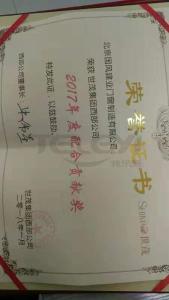 荣誉证书
Shimao世茂
北京国风建业门窗制造有限公司
荣获 世茂集团西部公司
2017年度配合贡献奖
特发此证，以兹鼓励
西部公司董事长
世茂集团西部公司
二零一八年一月